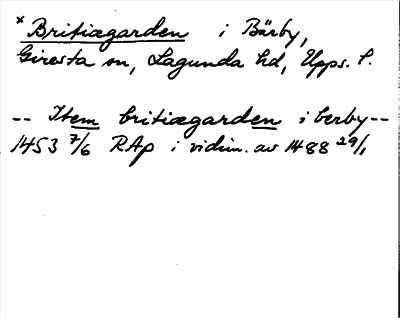 * Britiægarden i Bärby,
Giresta sn, Lagunda hd, Upps. l.
-- Item britiægarden i berby --
1453 7/6 RAp i vidim. av 1488 29/1